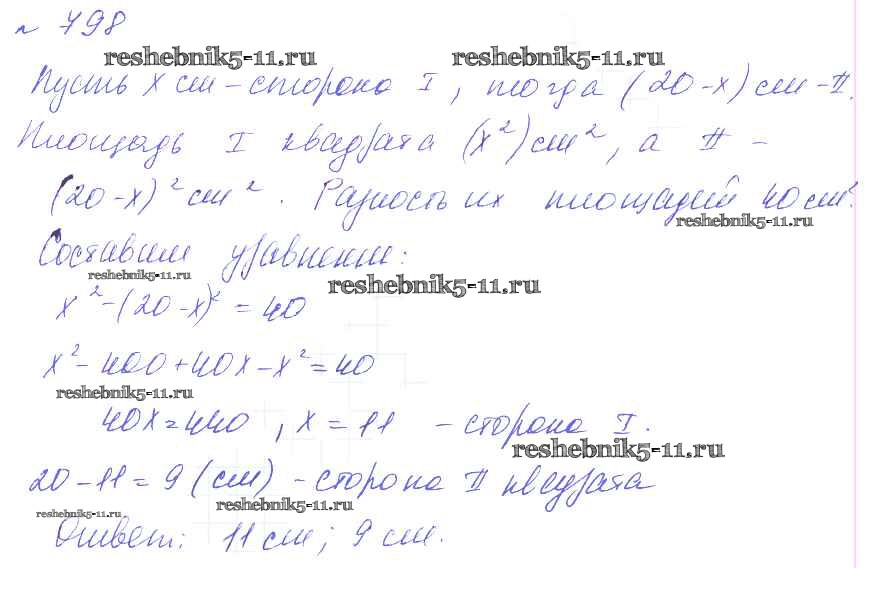 № 798
reshebnik5-11.ru reshebnik5-11.ru
Пусть x см - сторона I, тогда (20-x) см - II.
Площадь I квадрата (x²) см², а II -
(20-x)² см². Разность их площадей 40 см².
reshebnik5-11.ru
Составим уравнение:
reshebnik5-11.ru
reshebnik5-11.ru
x² - (20-x)² = 40
x² - 400 + 40x - x² = 40
reshebnik5-11.ru
40x = 440, x = 11 - сторона I.
reshebnik5-11.ru
20 - 11 = 9 (см) - сторона II квадрата
reshebnik5-11.ru
reshebnik5-11.ru
Ответ: 11 см; 9 см.